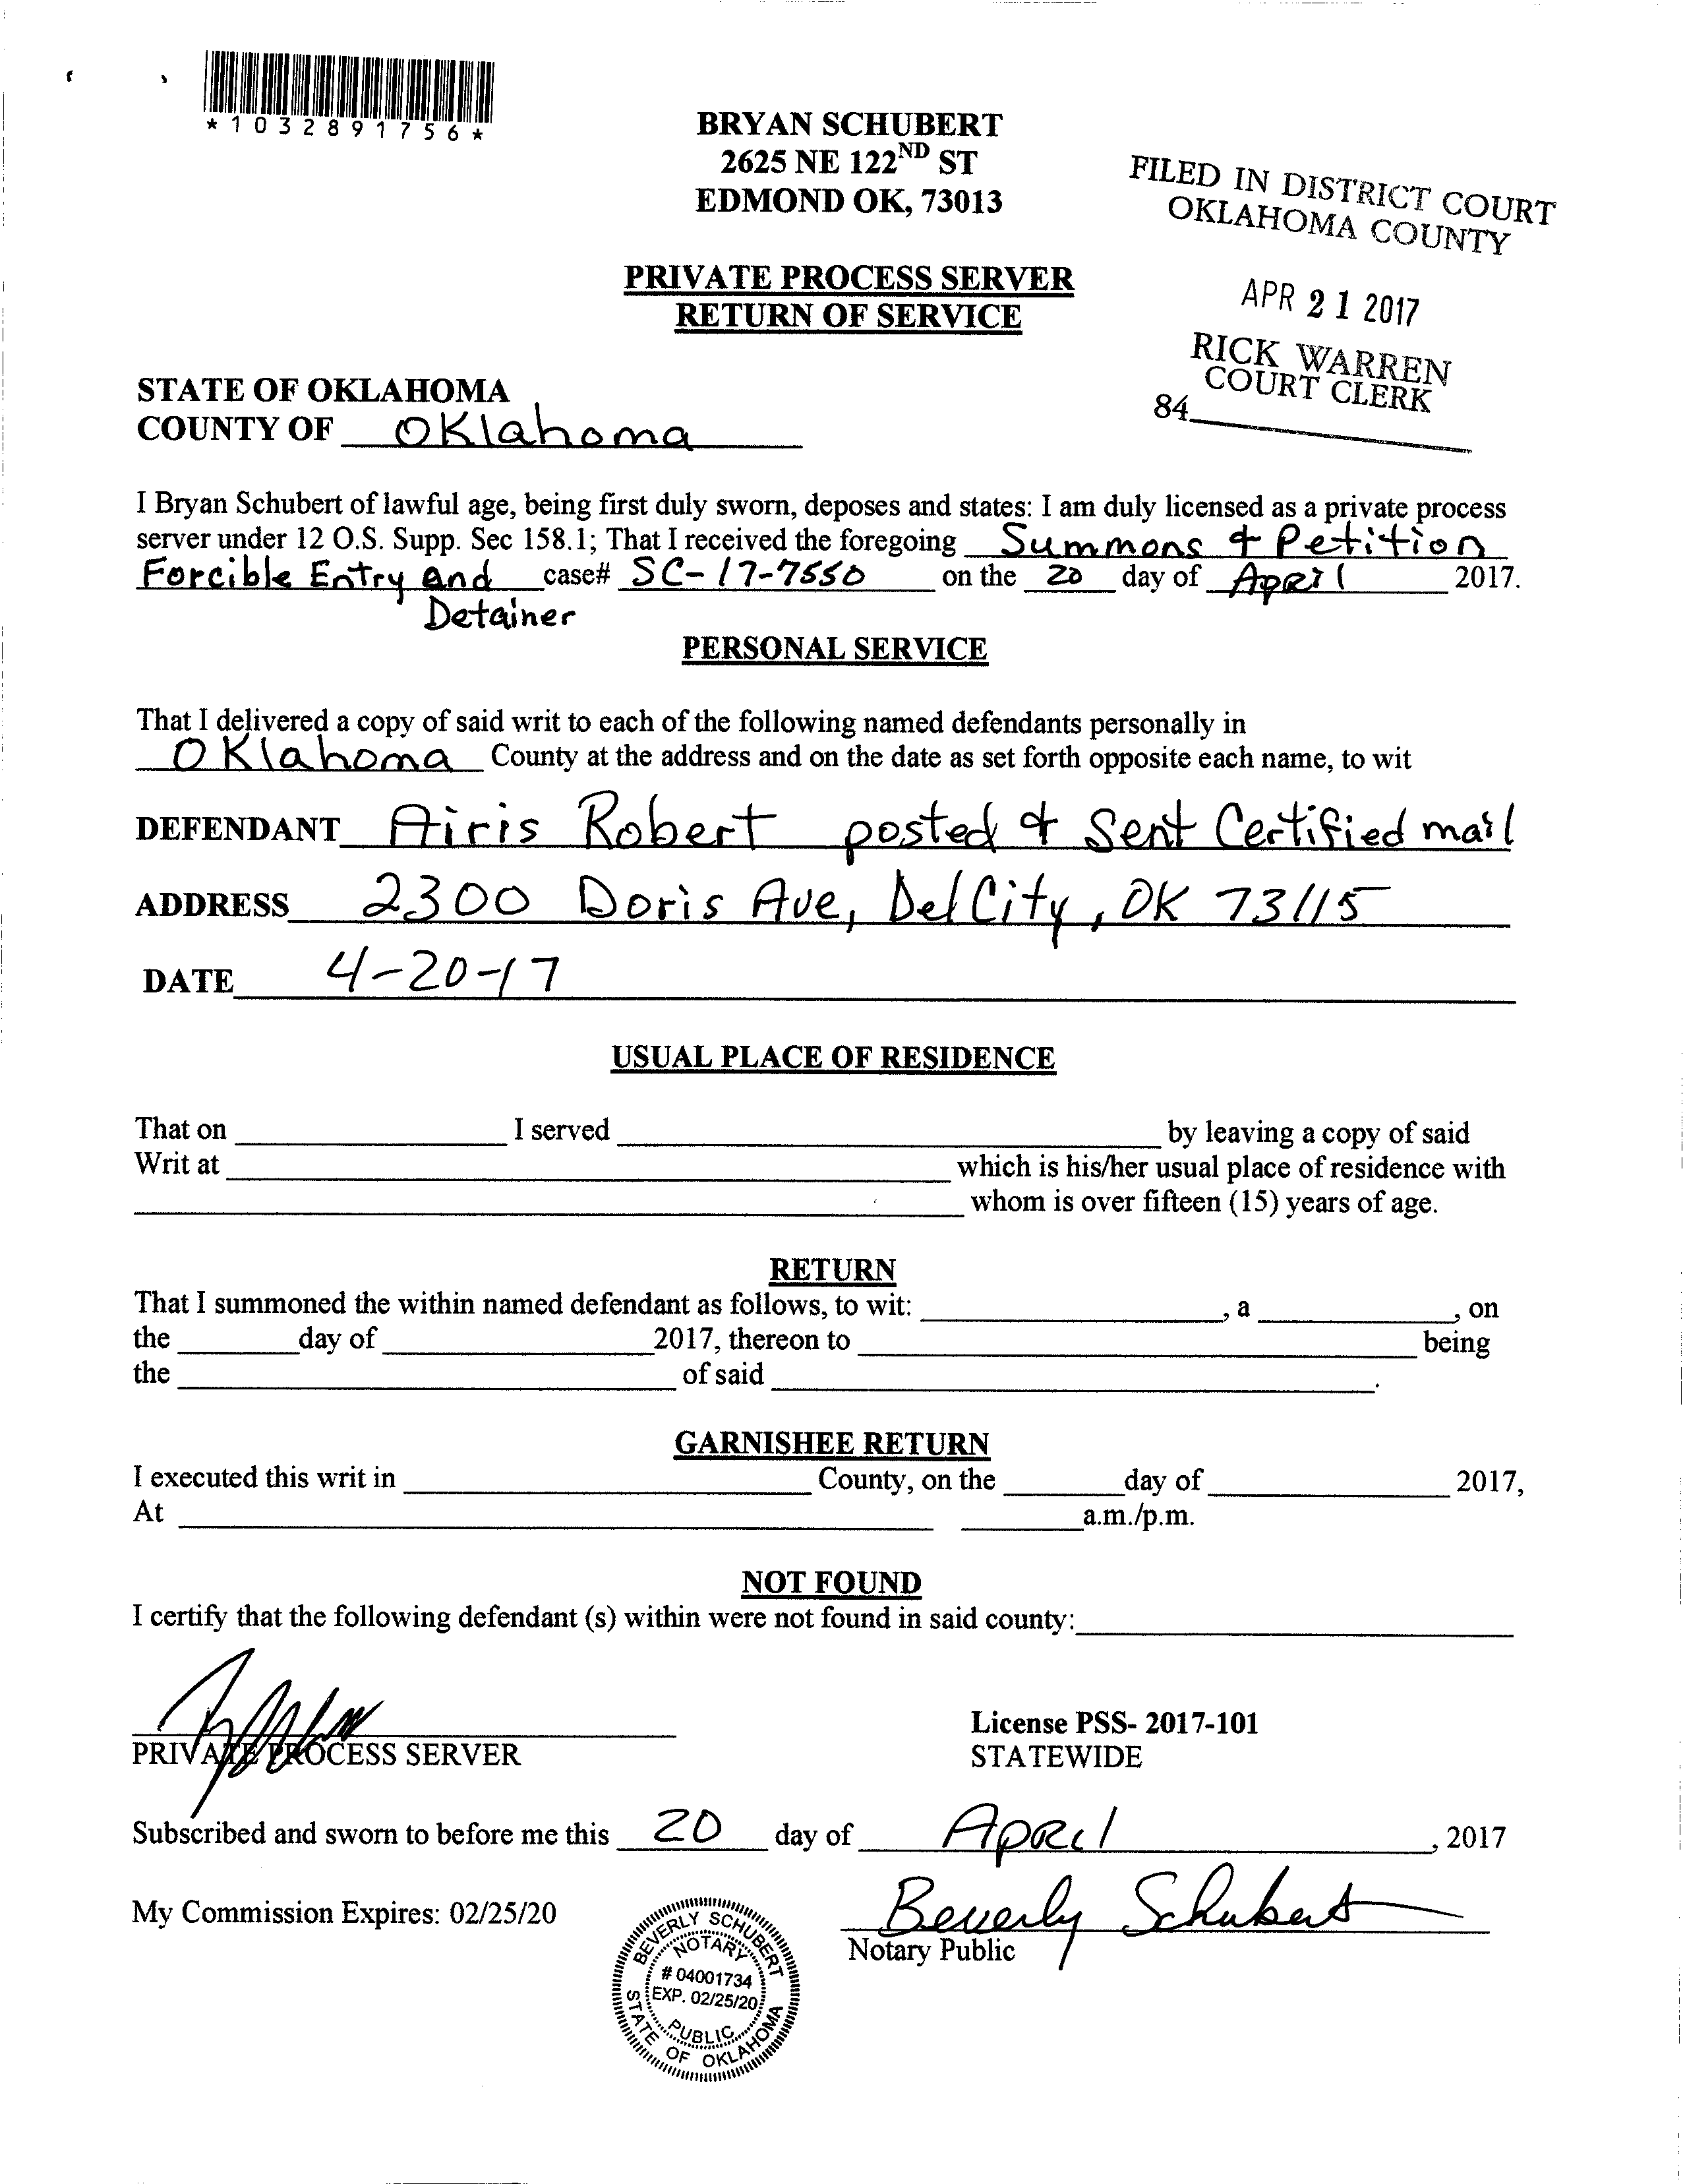 *1032891756*
BRYAN SCHUBERT
2625 NE 122ND ST
EDMOND OK, 73013
FILED IN DISTRICT COURT
OKLAHOMA COUNTY
APR 21 2017
RICK WARREN
COURT CLERK
84
PRIVATE PROCESS SERVER
RETURN OF SERVICE
STATE OF OKLAHOMA
COUNTY OF Oklahoma
I Bryan Schubert of lawful age, being first duly sworn, deposes and states: I am duly licensed as a private process
server under 12 O.S. Supp. Sec 158.1; That I received the foregoing Summons & Petition
Forcible Entry and case# SC-17-7550 on the 20 day of April 2017.
Detainer
PERSONAL SERVICE
That I delivered a copy of said writ to each of the following named defendants personally in
Oklahoma County at the address and on the date as set forth opposite each name, to wit
DEFENDANT Airis Robert posted & Sent Certified mail
ADDRESS 2300 Doris Ave, Del City, OK 73115
DATE 4-20-17
USUAL PLACE OF RESIDENCE
That on I served by leaving a copy of said
Writ at which is his/her usual place of residence with
whom is over fifteen (15) years of age.
RETURN
That I summoned the within named defendant as follows, to wit: , a , on
the day of 2017, thereon to being
the of said .
GARNISHEE RETURN
I executed this writ in County, on the day of 2017,
At a.m./p.m.
NOT FOUND
I certify that the following defendant (s) within were not found in said county:
PRIVATE PROCESS SERVER
License PSS- 2017-101
STATEWIDE
Subscribed and sworn to before me this 20 day of April , 2017
My Commission Expires: 02/25/20
Beverly Schubert
Notary Public
BEVERLY SCHUBERT
NOTARY
# 04001734
EXP. 02/25/20
PUBLIC
STATE OF OKLAHOMA